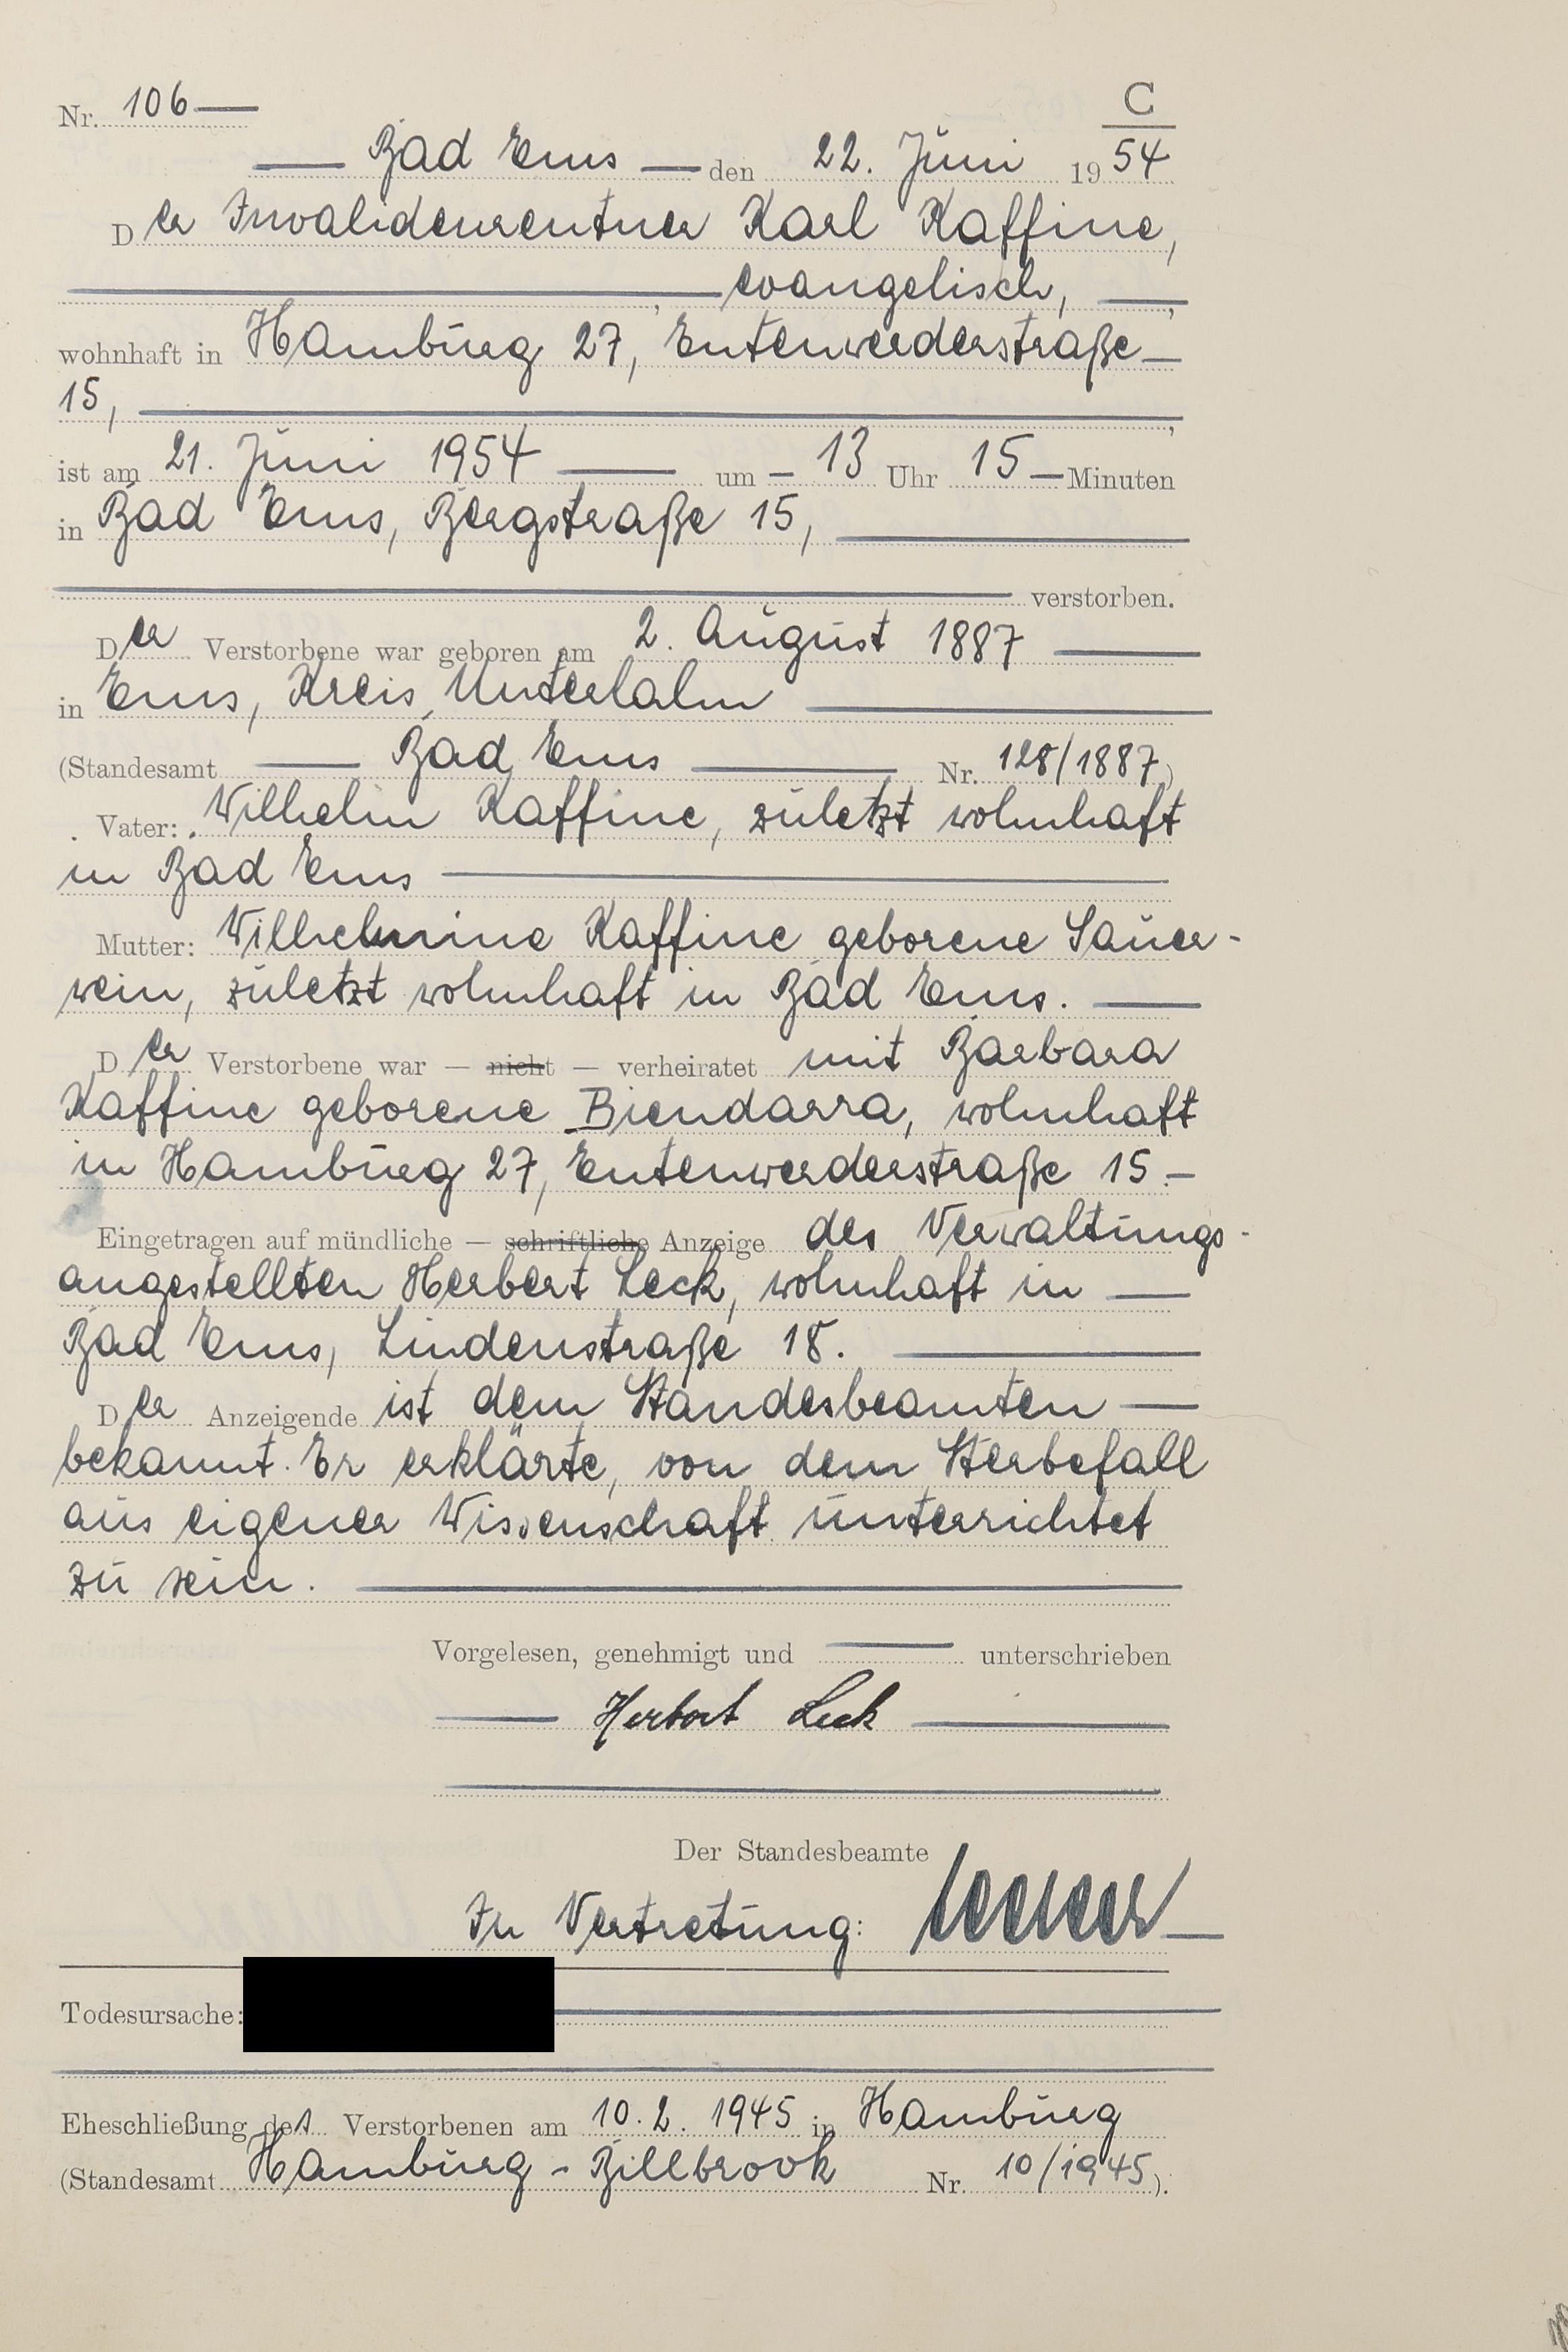 C
Nr. 106
Bad Ems den 22. Juni 1954
Der Invalidenrentner Karl Kaffine,
evangelisch,
wohnhaft in Hamburg 27, Entenwerderstraße
15,
ist am 21. Juni 1954 um 13 Uhr 15 Minuten
in Bad Ems, Bergstraße 15,
verstorben.
Der Verstorbene war geboren am 2. August 1887
in Ems, Kreis Unterlahn
(Standesamt Bad Ems Nr. 128/1887)
Vater: Wilhelm Kaffine, zuletzt wohnhaft
in Bad Ems
Mutter: Wilhelmine Kaffine geborene Sauer-
wein, zuletzt wohnhaft in Bad Ems.
Der Verstorbene war — nicht — verheiratet mit Barbara
Kaffine geborene Biendarra, wohnhaft
in Hamburg 27, Entenwerderstraße 15
Eingetragen auf mündliche — schriftliche Anzeige des Verwaltungs-
angestellten Herbert Leck, wohnhaft in
Bad Ems, Lindenstraße 18.
Der Anzeigende ist dem Standesbeamten
bekannt. Er erklärte, von dem Sterbefall
aus eigener Wissenschaft unterrichtet
zu sein.
Vorgelesen, genehmigt und unterschrieben
Herbert Leck
Der Standesbeamte
In Vertretung:
Todesursache:
Eheschließung des Verstorbenen am 10.2.1945 in Hamburg
(Standesamt Hamburg-Billbrook Nr. 10/1945).